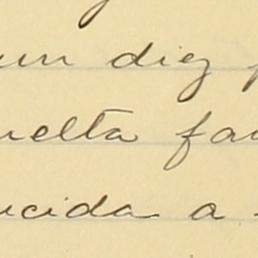 un diez
uelta fa
ucida a